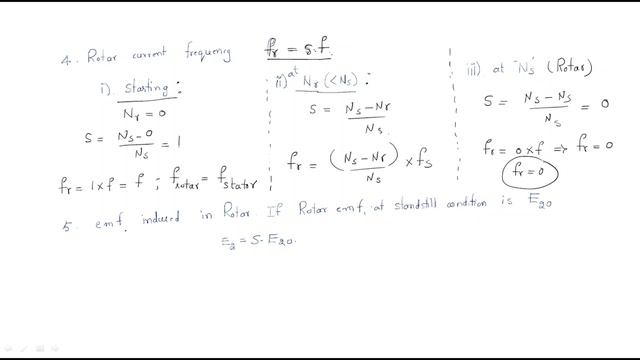 4. Rotar current frequency fr = s.f.
i). Starting :
Nr = 0
S = Ns - 0 / Ns = 1
fr = 1 x f = f ; frotar = fstator
ii) at Nr (< Ns) :
S = Ns - Nr / Ns
fr = (Ns - Nr / Ns) x fs
iii) at 'Ns' (Rotar)
S = Ns - Ns / Ns = 0
fr = 0 x f => fr = 0
fr = 0
5. emf. induced in Rotar. If Rotar emf, at standstill condition is E20
E2 = S. E20.